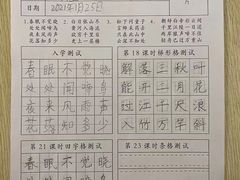 日期 2021年1月25日
1.春眠不觉晓 2.白日依山尽 3.松下问童子
处处闻啼鸟 黄河入海流 言师采药去
夜来风雨声 欲穷千里目 只在此山中
花落知多少 更上一层楼 云深不知处
入学测试 第18课时梯形格测试
春眠不觉晓 解落三秋叶
处处闻啼鸟 能开二月花
夜来风雨声 过江千尺浪
花落知多少 入竹万竿斜
第21课时田字格测试 第23课时条格测试
春眠不觉晓